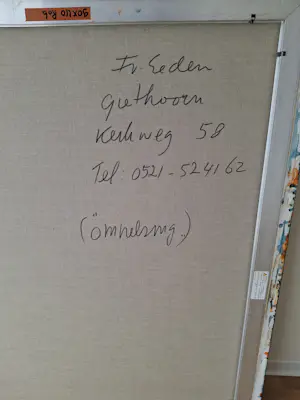 90x110 Rob
Fr. Eeden
Giethoorn
Kerkweg 58
Tel: 0521-524162